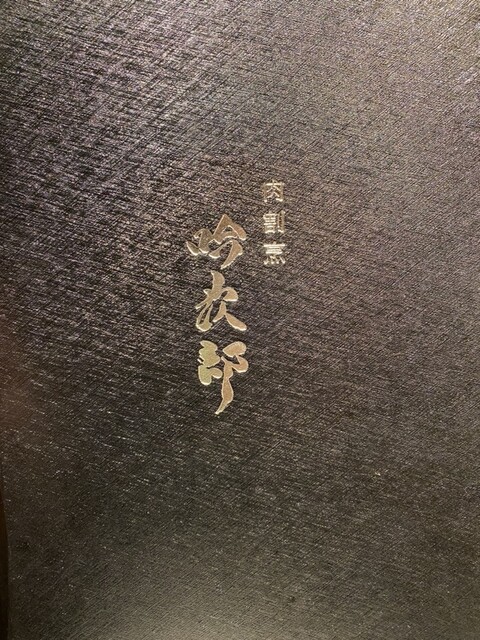 肉割烹
吟次郎